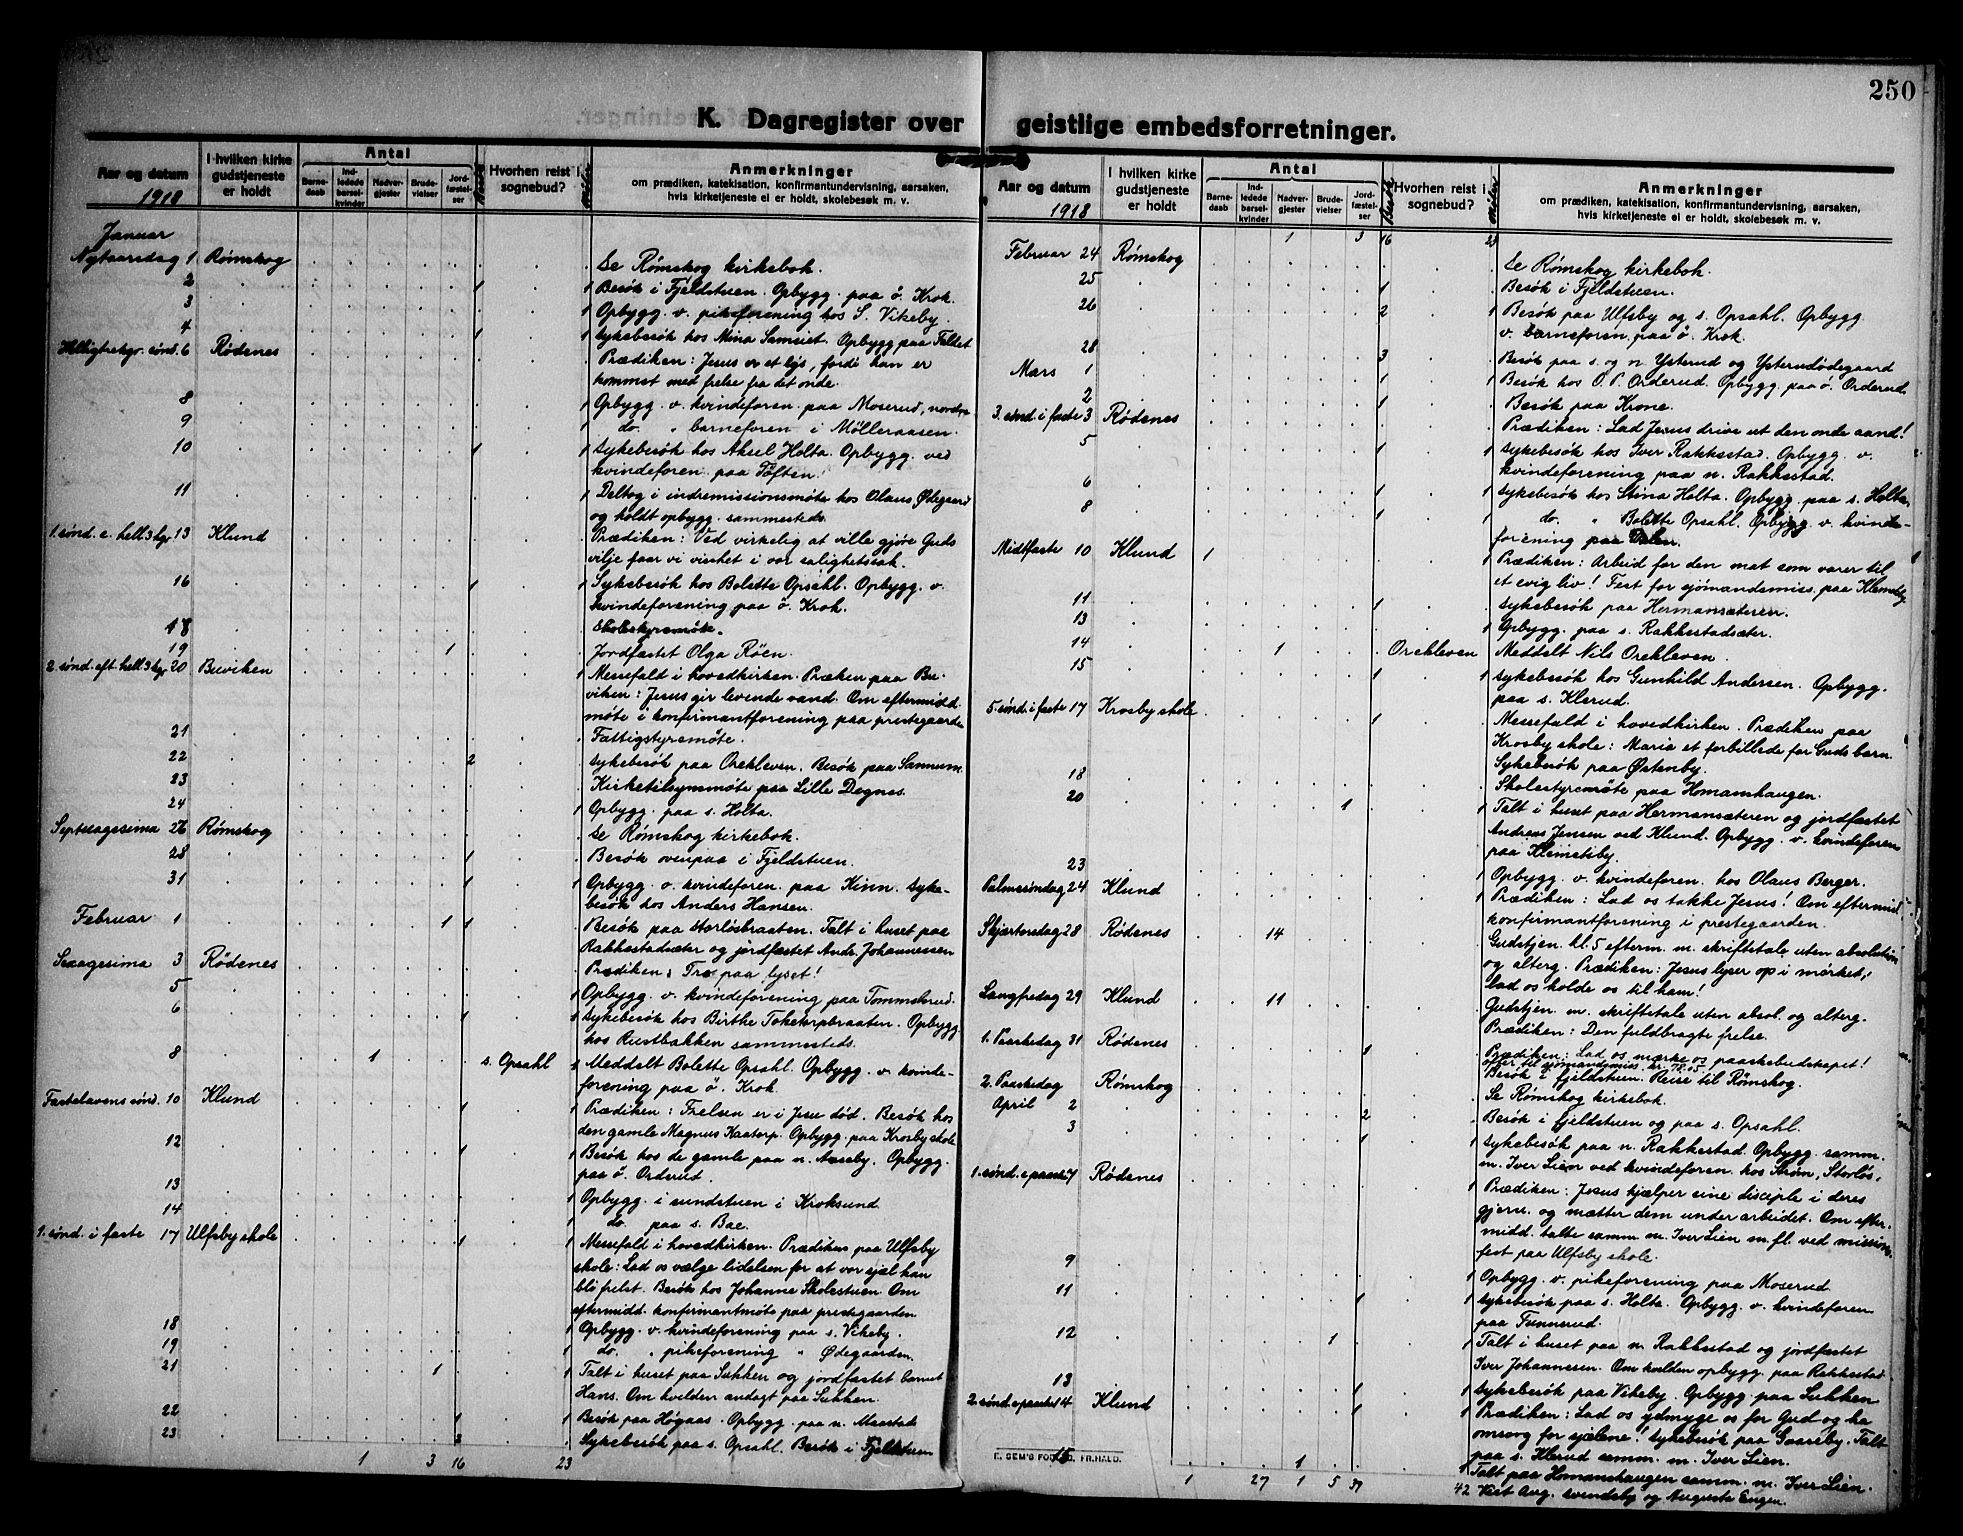 250
K. Dagregister over geistlige embedsforretninger.
Aar og datum
1918
I hvilken kirke gudstjeneste er holdt
Antal
Barnedaab
Indledede barselkvinder
Nadvergjester
Brudevielser
Jordfæstelser
Besøk
Hvorhen reist i sognebud?
Milen
Anmerkninger
om prædiken, katekisation, konfirmantundervisning, aarsaken, hvis kirketjeneste ei er holdt, skolebesøk m. v.
Januar
Nytaarsdag 1 Rømskog Se Rømskog kirkebok.
2 1 1 Besøk i Fjeldstuen. Opbygg. paa ö. Krok.
3 1 Opbygg. v. pikeforening hos S. Vikeby.
4 1 1 Sykebesøk hos Mina Samuet. Opbygg paa Faldet
Helligtrekgr. sønd. 6 Rødenes Prædiken: Jesus er et lys, fordi han er
kommet med frelse fra det onde.
8 1 Opbygg. v. kvindeforen. paa Moserud, nordre
9 1 do. " barneforen i Mølleraasen.
10 1 1 Sykebesøk hos Aksel Holta. Opbygg. ved
kvindeforen. paa Toften.
11 1 Deltog i indremissionsmøte hos Olaus Ødegaard
og holdt opbygg. sammesteds.
1. sønd. e. hell. 3 kgr. 13 Klund Prædiken: Ved virkelig at ville gjøre Guds
vilje faar vi vished i vor salighetssak.
16 1 1 Sykebesøk hos Bolette Opsahl. Opbygg. v.
kvindeforening paa ö. Krok.
18 Skolestyremøte.
19 1 Jordfæstet Olga Röen.
2. sønd. eft. hell. 3 kgr. 20 Buviken 1 Messefald i hovedkirken. Præken paa Bu-
viken: Jesus gir levende vand. Om eftermidd.
møte i konfirmantforening paa prestegaarden
21 Fattigstyremøte.
22 2 Sykebesøk paa Orekleven. Besøk paa Sannum.
23 Kirketilsynsmøte paa Lille Degnes.
24 1 Opbygg. paa s. Holta.
Septuagesima 26 Rømskog Se Rømskog kirkebok.
28 1 Besøk ovenpaa i Fjeldstuen.
31 1 1 Opbygg. v. kvindeforen. paa Kinn. Syke-
besøk hos Anders Hansen.
Februar 1 1 1 Besøk paa Storlösbraaten. Talt i huset paa
Rakkestadsæter og jordfæstet Andr. Johannessen
Sexagesima 3 Rødenes Prædiken: Tro paa lyset!
5 1 Opbygg. v. kvindeforening paa Tommesrud.
6 1 1 Sykebesøk hos Birthe Toketorpbraaten. Opbygg.
hos Rustbakken sammesteds.
8 1 s. Opsahl 1 Meddelt Bolette Opsahl. Opbygg. v. kvinde-
forening paa ö. Krok
Fastelavens sønd. 10 Klund 1 1 Prædiken: Frelsen er i Jesu død. Besøk hos
den gamle Magnus Kaatorp. Opbygg. paa Krosby skole
12 1 1 Besøk hos de gamle paa n. Aaseby. Opbygg.
paa ö. Orderud.
13 1 Opbygg. i sundstuen i Kroksund
14 1 do. paa s. Bae.
1. sønd. i faste 17 Ulfsby skole 1 1 Messefald i hovedkirken. Prædiken paa Ulfsby
skole: Lad os vælge lidelsen for at vor sjæl kan
bli frelst. Besøk hos Johanne Skolestuen. Om
eftermidd. konfirmantmøte paa prestegaarden
18 1 Opbygg. v. kvindeforening paa s. Vikeby.
19 1 do. " pikeforening " Ødegaarden.
21 1 1 Talt i huset paa Sukken og jordfæstet barnet
Hans. Om kvelden andagt paa Sukken.
22 1 1 Besøk paa Högaas. Opbygg. paa n. Maastad
23 2 Sykebesøk paa s. Opsahl. Besøk i Fjeldstuen
1 3 16 23
Aar og datum
1918
I hvilken kirke gudstjeneste er holdt
Antal
Barnedaab
Indledede barselkvinder
Nadvergjester
Brudevielser
Jordfæstelser
Besøk
Hvorhen reist i sognebud?
Milen
Anmerkninger
om prædiken, katekisation, konfirmantundervisning, aarsaken, hvis kirketjeneste ei er holdt, skolebesøk m. v.
1 3 16 23
Februar 24 Rømskog Se Rømskog kirkebok.
25 1 Besøk i Fjeldstuen.
26 2 1 Besøk paa Ulfsby og s. Opsahl. Opbygg
v. barneforen. paa ö. Krok.
28 3 Besøk paa s. og n. Ysterud og Ysterudødegaard
Mars 1 1 1 Besøk hos O. P. Orderud. Opbygg. paa ö. Orderud
2 1 Besøk paa Krone.
3. sønd. i faste 3 Rødenes Prædiken: Lad Jesus drive ut den onde aand!
5 1 1 Sykebesøk hos Iver Rakkestad. Opbygg. v.
kvindeforening paa n. Rakkestad.
6 1 1 Sykebesøk hos Stina Holta. Opbygg. paa s. Holta
8 1 1 do. " Bolette Opsahl. Opbygg v. kvinde-
forening paa Dalen.
Midtfaste 10 Klund 1 1 Prædiken: Arbeid for den mat som varer til
et evig liv! Fest for sjömandsmiss. paa Klemetsby
11 1 Sykebesøk paa Hermansæteren.
13 1 Opbygg. paa s. Rakkestadsæter.
14 1 Orekleven Meddelt Nils Orekleven.
15 1 1 Sykebesøk hos Gunhild Andersen. Opbygg.
paa s. Klerud.
5. sønd. i faste 17 Krosby skole 1 Messefald i hovedkirken. Prædiken paa
Krosby skole: Maria et forbillede for Guds barn.
Sykebesøk paa Østenby.
18 Skolestyremøte paa Homanshaugen.
20 1 1 Talt i huset paa Hermansæteren og jordfæstet
Andreas Jensen ved Klund. Opbygg. v. kvindeforen
paa Klemetsby.
23 1 Opbygg. v. kvindeforen. hos Olaus Berger.
Palmesöndag 24 Klund 1 Prædiken: Lad os takke Jesus! Om eftermid.
konfirmantforening i prestegaarden.
Skjærtorsdag 28 Rødenes 14 Gudstjen. kl. 5 efterm. m. skriftetale uten absolution
og alterg. Prædiken: Jesus lyser op i mørket,
lad os holde os til ham!
Langfredag 29 Klund 11 Gudstjen. m. skriftetale uten absol. og alterg.
Prædiken: Den fuldbragte frelse.
1. Paaskedag 31 Rødenes 1 Prædiken: Lad os mærke os paaskebudskapet!
offer til sjömandsmiss. kr. 78.05
Besøk i Fjeldstuen. Reise til Rømskog.
2. Paaskedag Rømskog Se Rømskog kirkebok.
April 2 2 Besøk i Fjeldstuen og paa s. Opsahl.
3 1 1 Sykebesøk paa n. Rakkestad. Opbygg. samm.
m. Iver Lien ved kvindeforen. hos Strøm, Storlös.
1. sønd. e. paaske 7 Rødenes 1 Prædiken: Jesus hjælper sine disciple i deres
gjern. og mætter dem under arbeidet. Om efter-
midd. talte samm. m. Iver Lien m. fl. ved missions-
fest paa Ulfsby skole.
9 1 Opbygg. v. pikeforening paa Moserud.
11 1 1 Sykebesøk paa s. Holta. Opbygg. v. kvindeforen
paa Tunnerud.
12 1 1 Talt i huset paa n. Rakkestad og jordfæstet
Iver Johannessen. Om kvelden opbygg. paa Rakkestad
13 1 1 Sykebesøk paa Vikeby. Opbygg. paa Sukken
2. sønd. e. paaske 14 Klund 1 1 Prædiken: Lad os ydmyge os for Gud og ha
omsorg for sjælene! Sykebesøk paa Gaaseby. Talt
paa s. Klerud samm. m. Iver Lien.
15 1 1 Talt paa Homanshaugen samm. m. Iver Lien.
Viet Aug. Svendsby og Auguste Engen.
1 27 1 5 31 42
E. SEM'S FORLAG, FR.HALD.